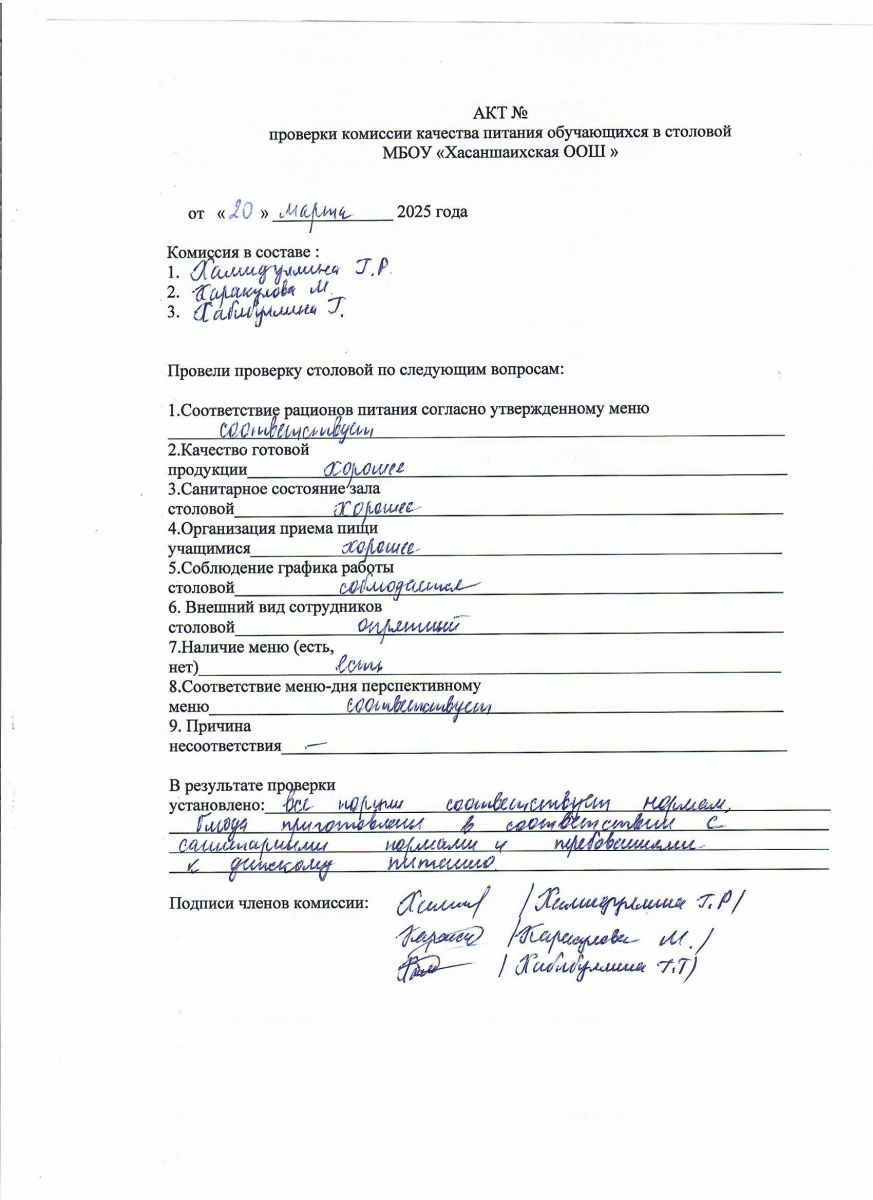 АКТ №
проверки комиссии качества питания обучающихся в столовой
МБОУ «Хасаншаихская ООШ »
от « 20 » марта 2025 года
Комиссия в составе :
1. Хамидуллина Г.Р.
2. Каракулова М.
3. Хабибуллина Г.
Провели проверку столовой по следующим вопросам:
1.Соответствие рационов питания согласно утвержденному меню
соответствует
2.Качество готовой
продукции хорошее
3.Санитарное состояние зала
столовой хорошее
4.Организация приема пищи
учащимися хорошее
5.Соблюдение графика работы
столовой соблюдается
6. Внешний вид сотрудников
столовой опрятный
7.Наличие меню (есть,
нет) есть
8.Соответствие меню-дня перспективному
меню соответствует
9. Причина
несоответствия —
В результате проверки
установлено: все порции соответствует нормам,
блюда приготовлены в соответствии с
санитарными нормами и требованиями
к детскому питанию.
Подписи членов комиссии: /Хамидуллина Г.Р/
/Каракулова М./
/ Хабибуллина Г.Т)